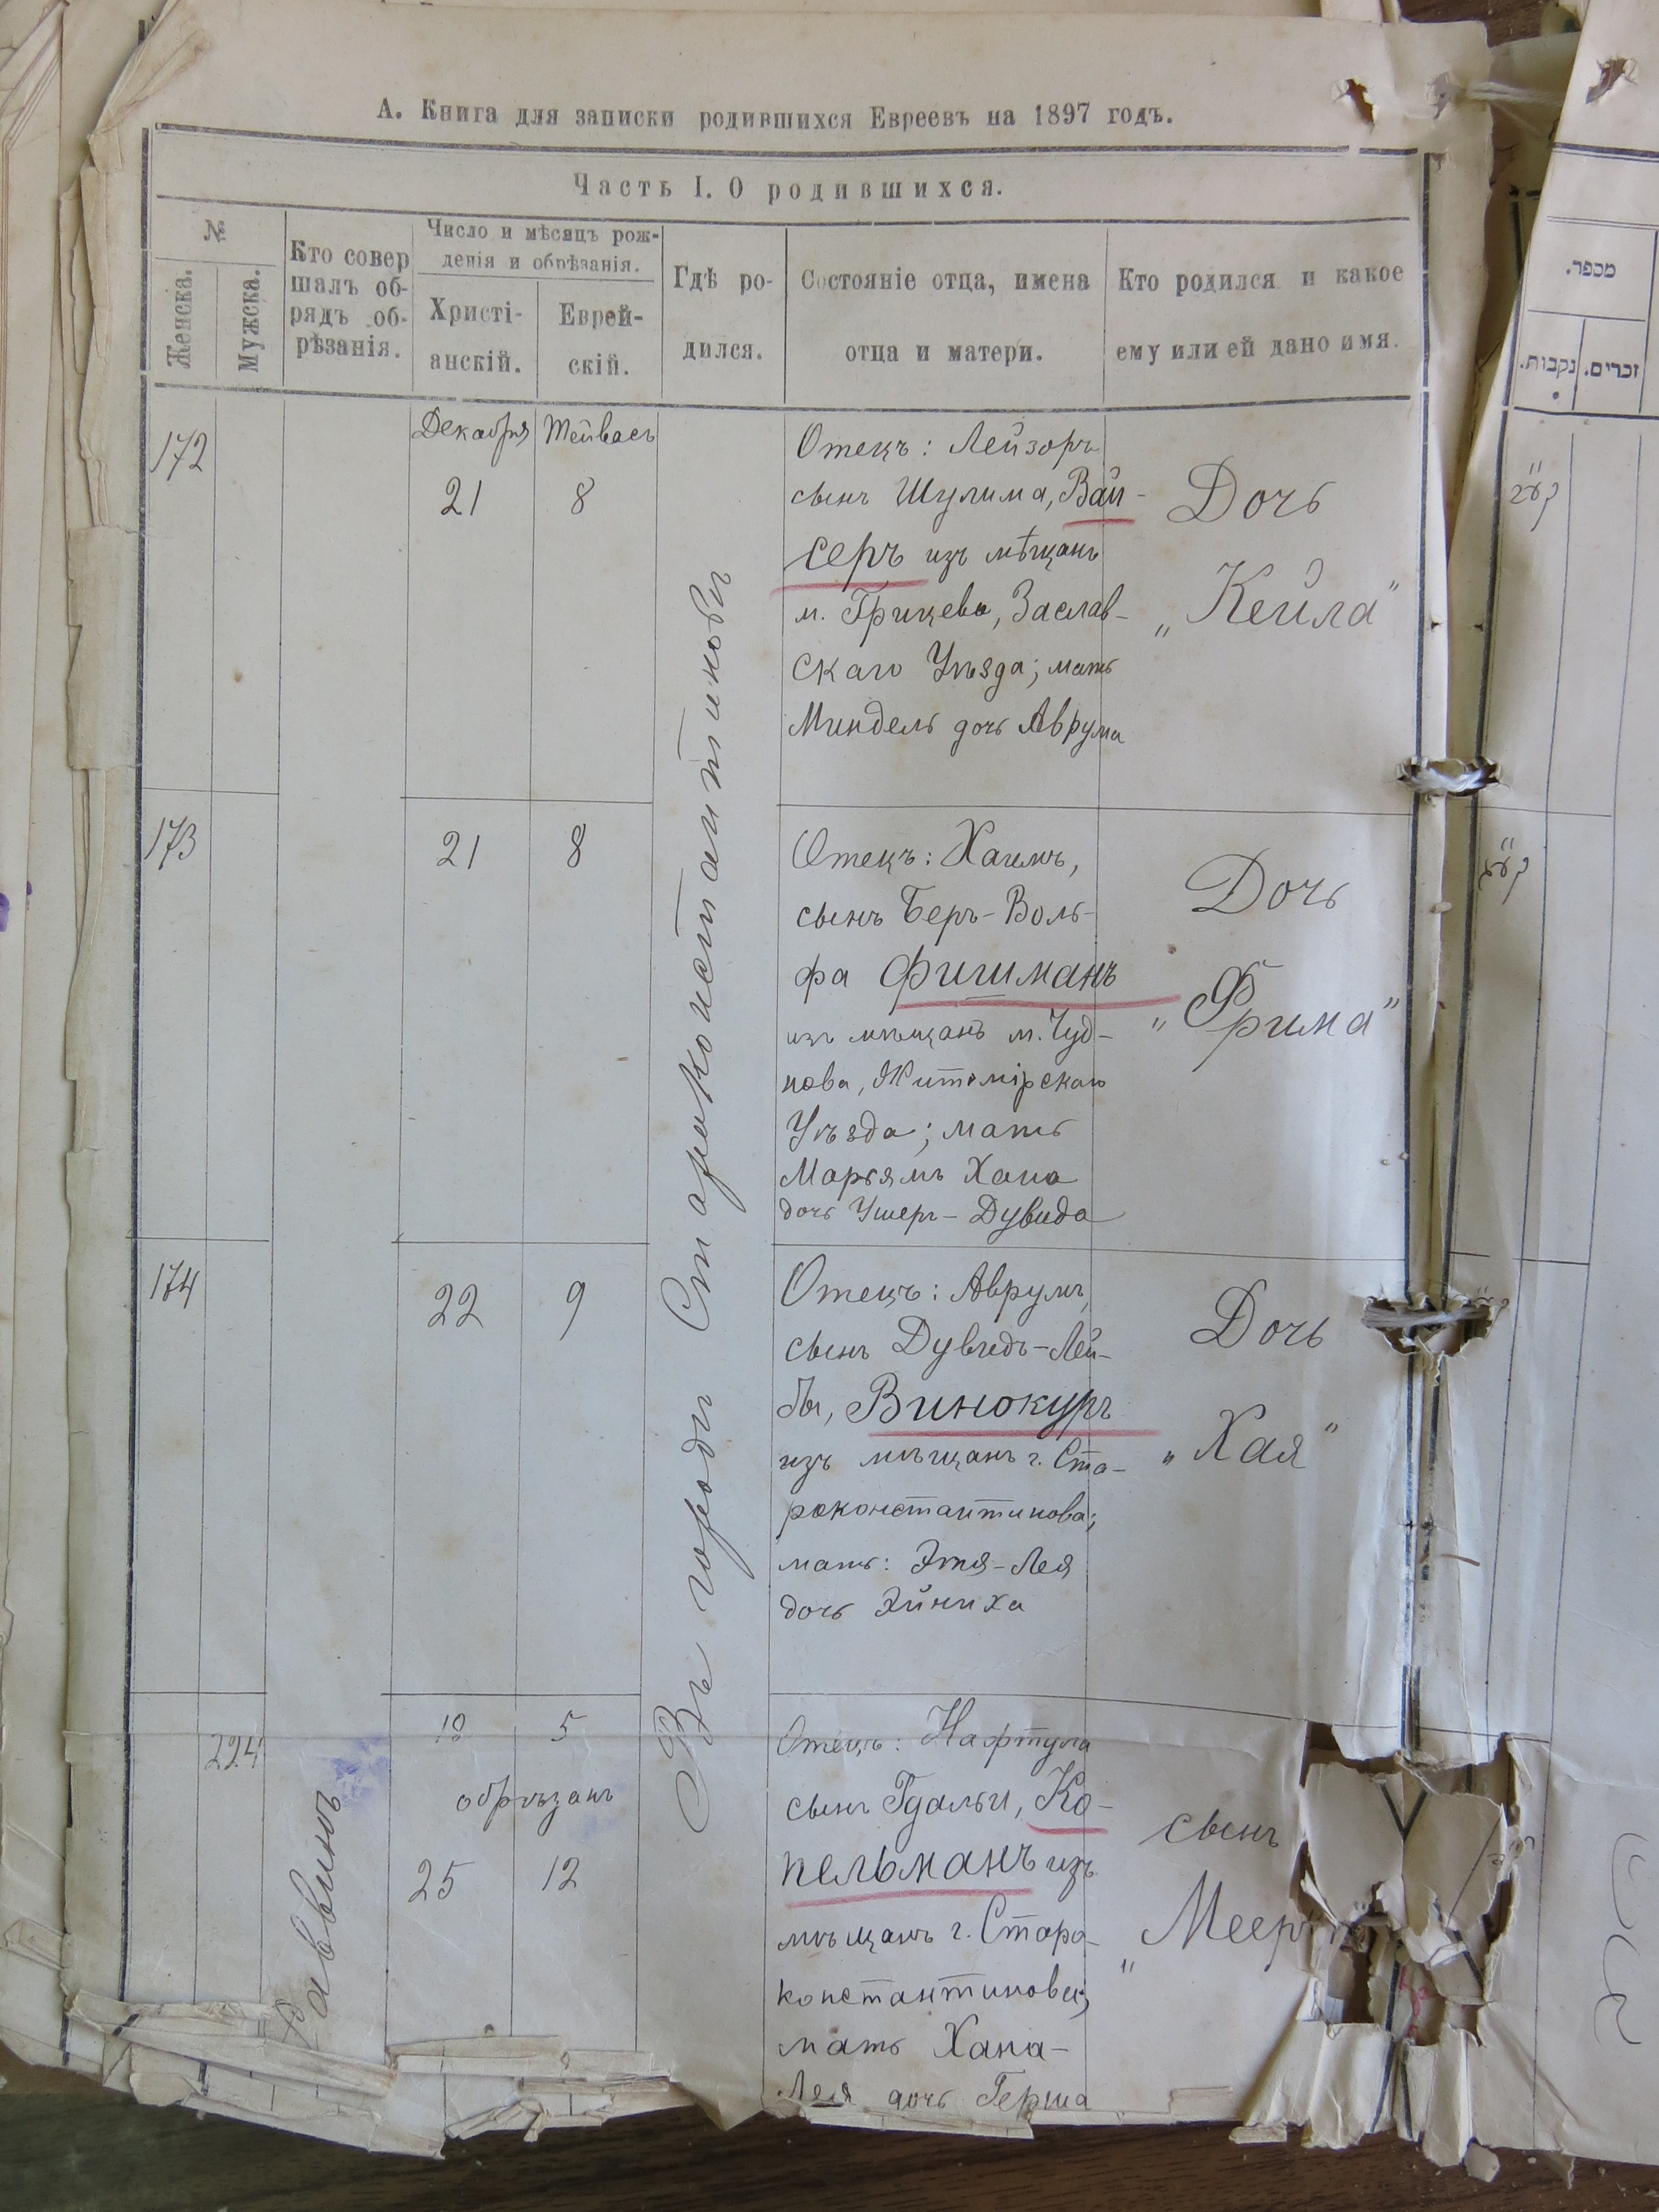 А. Книга для записки родившихся Евреевъ на 1897 годъ.
Часть I. О родившихся.
№
Женска.
Мужска.
Кто совер
шалъ об-
рядъ об-
рѣзанія.
Число и мѣсяцъ рож-
денія и обрѣзанія.
Христі-
анскій.
Еврей-
скій.
Гдѣ ро-
дился.
Состояніе отца, имена
отца и матери.
Кто родился и какое
ему или ей дано имя.
מכפר.
נקבות.
זכרים.
Въ городѣ Староконстантиновѣ
172
Декабря Тейвесъ
21 8
Отецъ: Лейзоръ
сынъ Шулима, Вай-
серъ изъ мѣщанъ
м. Грицева, Заслав-
скаго Уѣзда; мать
Миндель дочь Аврума
Дочь
„Кейла"
173
21 8
Отецъ: Хаимъ,
сынъ Беръ-Воль-
фа Фишманъ
изъ мѣщанъ м. Чуд-
нова, Житомірскаго
Уѣзда; мать
Марьямъ Хана
дочь Ушеръ-Дувида
Дочь
„Фрима"
174
22 9
Отецъ: Аврумъ,
сынъ Дувидъ-Лей-
бы, Винокуръ
изъ мѣщанъ г. Ста-
роконстантинова;
мать: Этя-Лея
дочь Эйниха
Дочь
„Хая"
224
Раввинъ
18 5
обрѣзанъ
25 12
Отецъ: Нафтула
сынъ Гдальи, Ко-
пельманъ изъ
мѣщанъ г. Старо-
константинова;
мать Хана-
Лея дочь Герша
сынъ
„Мееръ